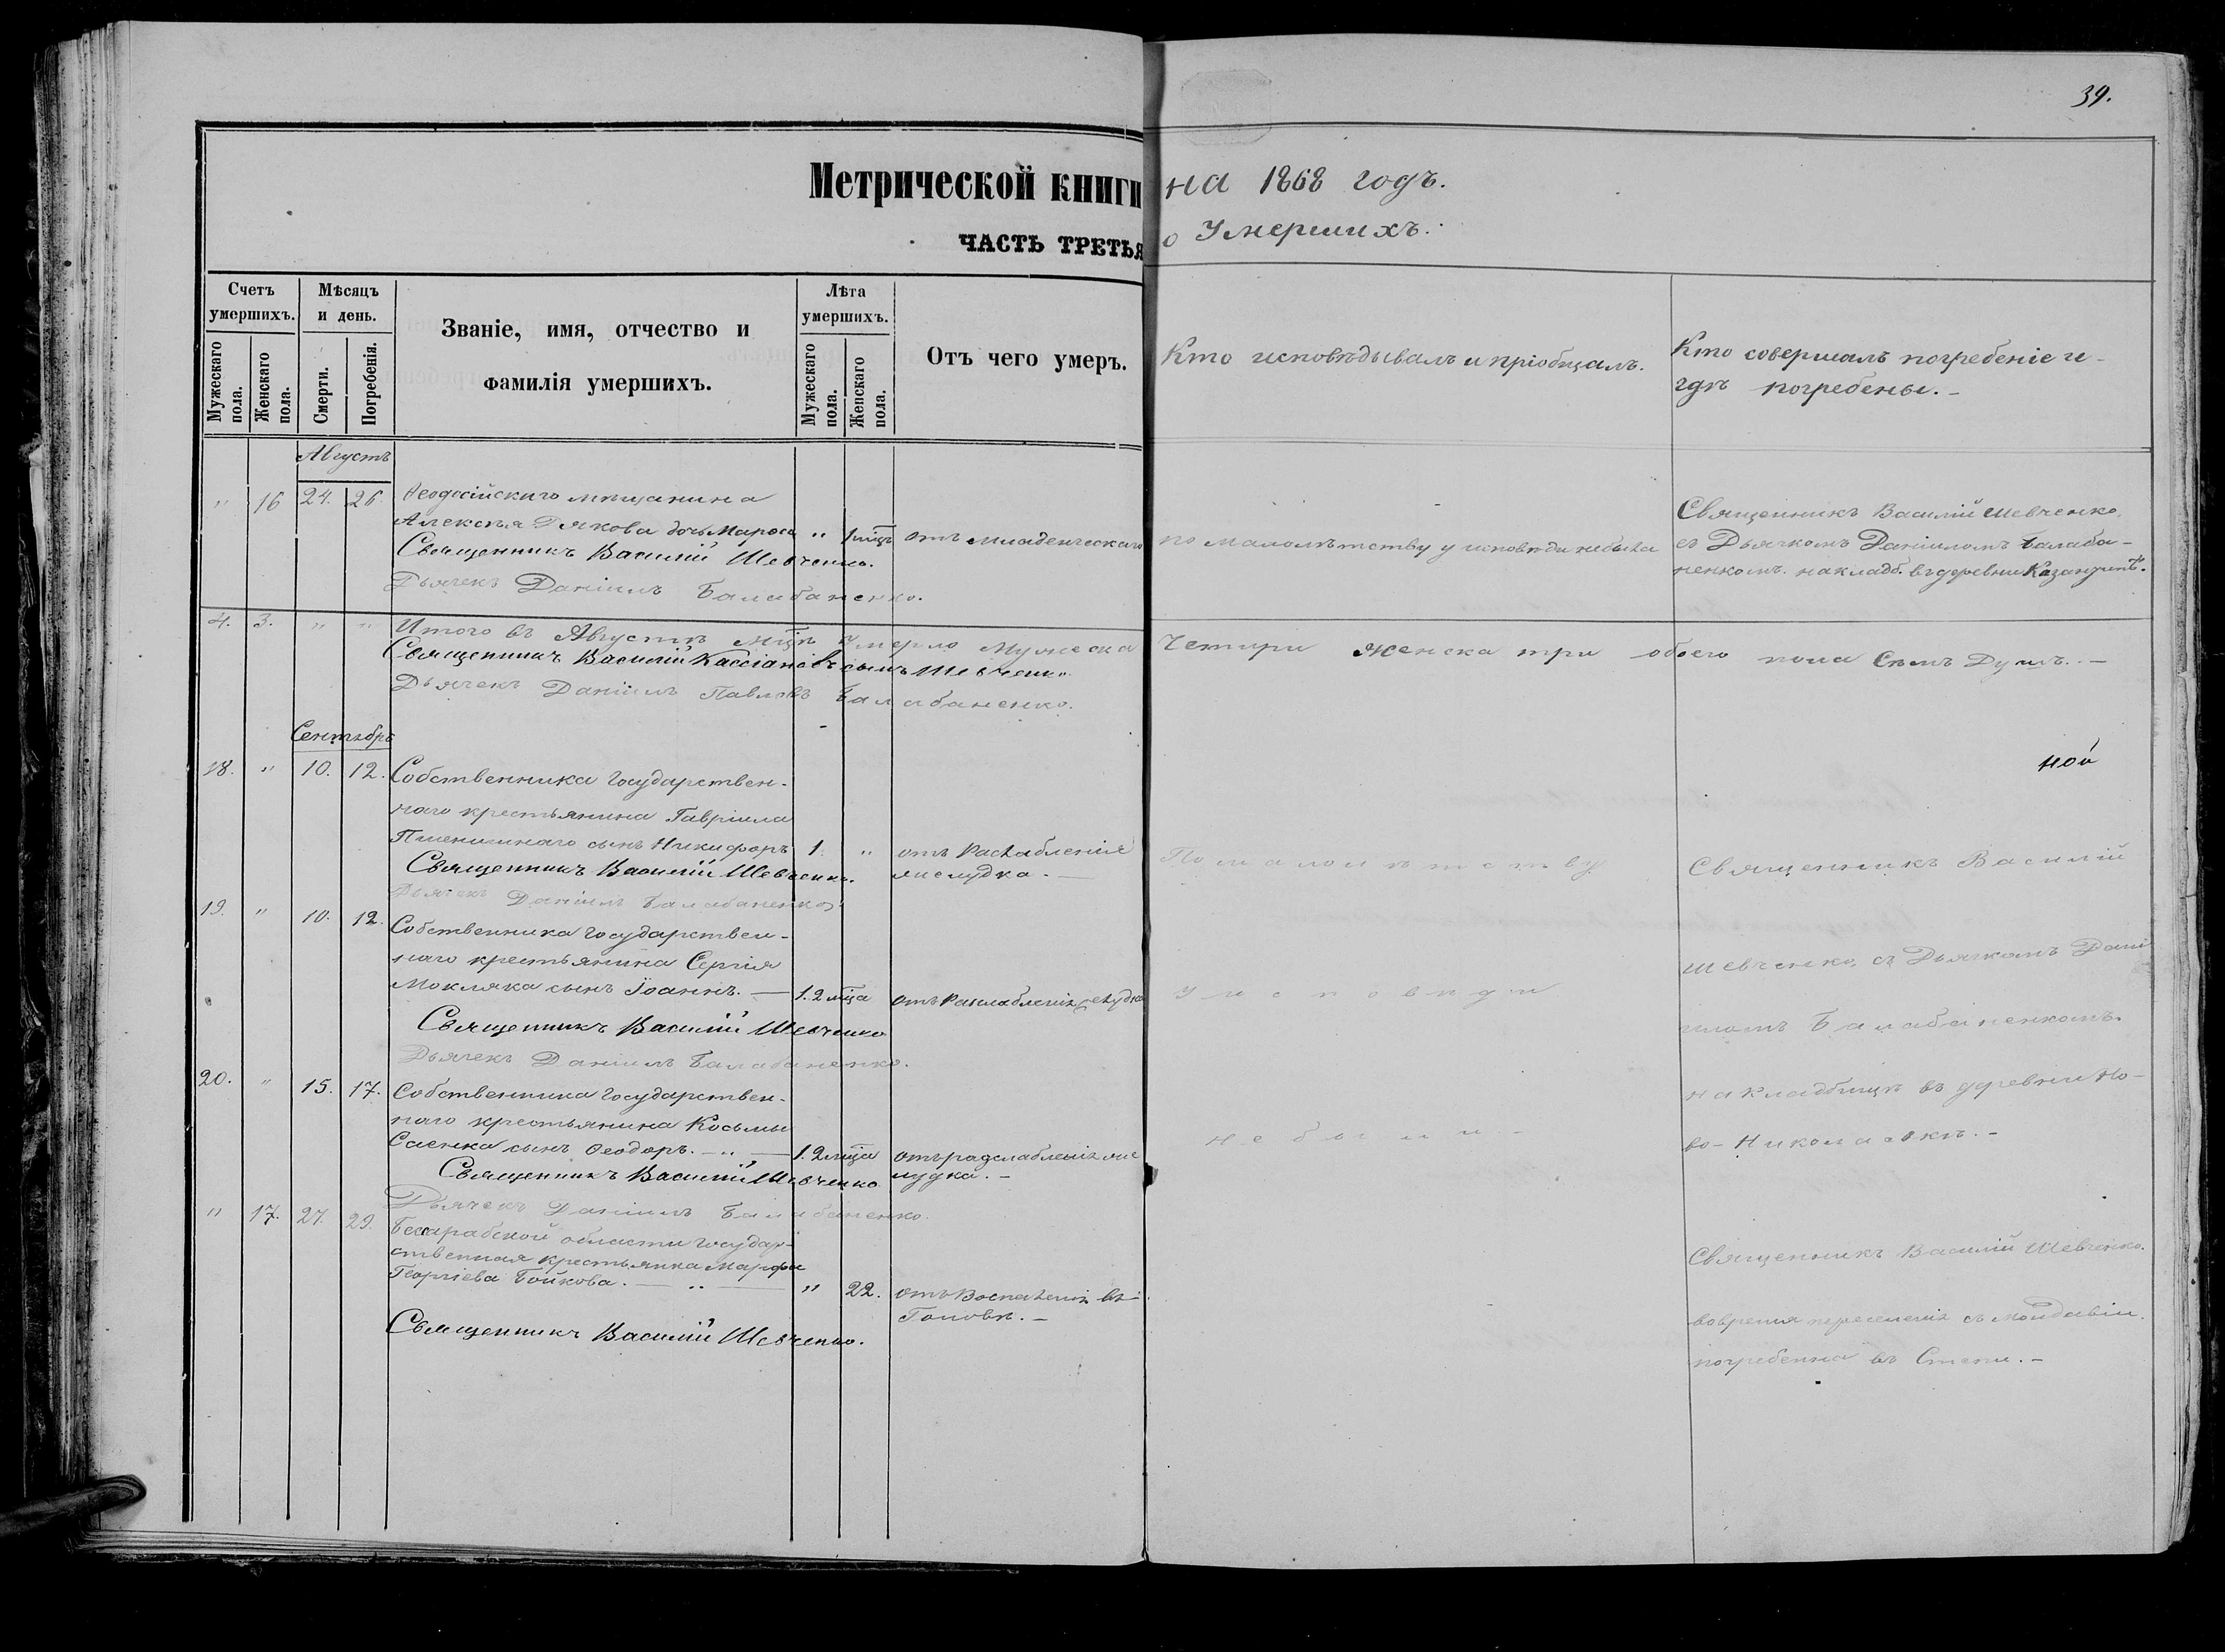 39.
Метрической книги на 1868 годъ.
ЧАСТЬ ТРЕТЬЯ о Умершихъ.
Счетъ умершихъ.
Мужескаго пола.
Женскаго пола.
Мѣсяцъ и день.
Смерти.
Погребенія.
Званіе, имя, отчество и
фамилія умершихъ.
Лѣта умершихъ.
Мужескаго пола.
Женскаго пола.
Отъ чего умеръ.
Кто исповѣдывалъ и пріобщалъ.
Кто совершалъ погребеніе и
гдѣ погребены.
Августъ
" 16 24. 26. Ѳеодосійскаго мѣщанина
Алексѣя дочь " 1 мцъ отъ младенческаго
по малолѣтству у исповѣди небыла
Священникъ Василій Шевченко.
Дьячекъ Даніилъ Балабаненко.
Священникъ Василій Шевченко,
съ Дьячкомъ Даніиломъ Балаба-
ненкомъ. на кладб. въ деревни
4. 3. " " Итого въ Августѣ мцѣ умерло мужеска Четыри женска три обоего пола Семъ Душъ. -
Священникъ Василій Кассіановъ сынъ Шевченко
Дьячекъ Даніилъ Павловъ Балабаненко.
Сентябрь
18. " 10. 12. Собственника государствен-
наго крестьянина Гавріила
Пшенишнаго сынъ Никифоръ 1. " отъ Раслабленія
желудка. -
Священникъ Василій Шевченко.
Дьячекъ Даніилъ Балабаненко
19. " 10. 12. Собственника государствен-
наго крестьянина Сергія
Мокляка сынъ Іоаннъ. - 1. 2 мца отъ Раслабленія желудка
Священникъ Василій Шевченко
Дьячекъ Даніилъ Балабаненко.
20. " 15. 17. Собственника государствен-
наго крестьянина Косьмы
Саенка сынъ Ѳеодоръ. - " - 1. 2 мца отъ разслабленія же
лудка. -
Священникъ Василій Шевченко
Дьячекъ Даніилъ Балабаненко.
По малолѣтству
у исповѣди
небыли. -
ной
Священникъ Василій
Шевченко, съ Дьячкомъ Дані
иломъ Балабаненкомъ.
на кладбищѣ въ деревни Но-
во-Николаевкѣ. -
" 17. 27. 29. Бессарабской области государ-
ственная крестьянка Марфа
Георгіева Бойкова. - " - " 22. отъ Воспаленія въ
Головѣ. -
Священникъ Василій Шевченко.
Священникъ Василій Шевченко.
вовремя переселенія съ Молдавіи.
погребенна въ Степи. -